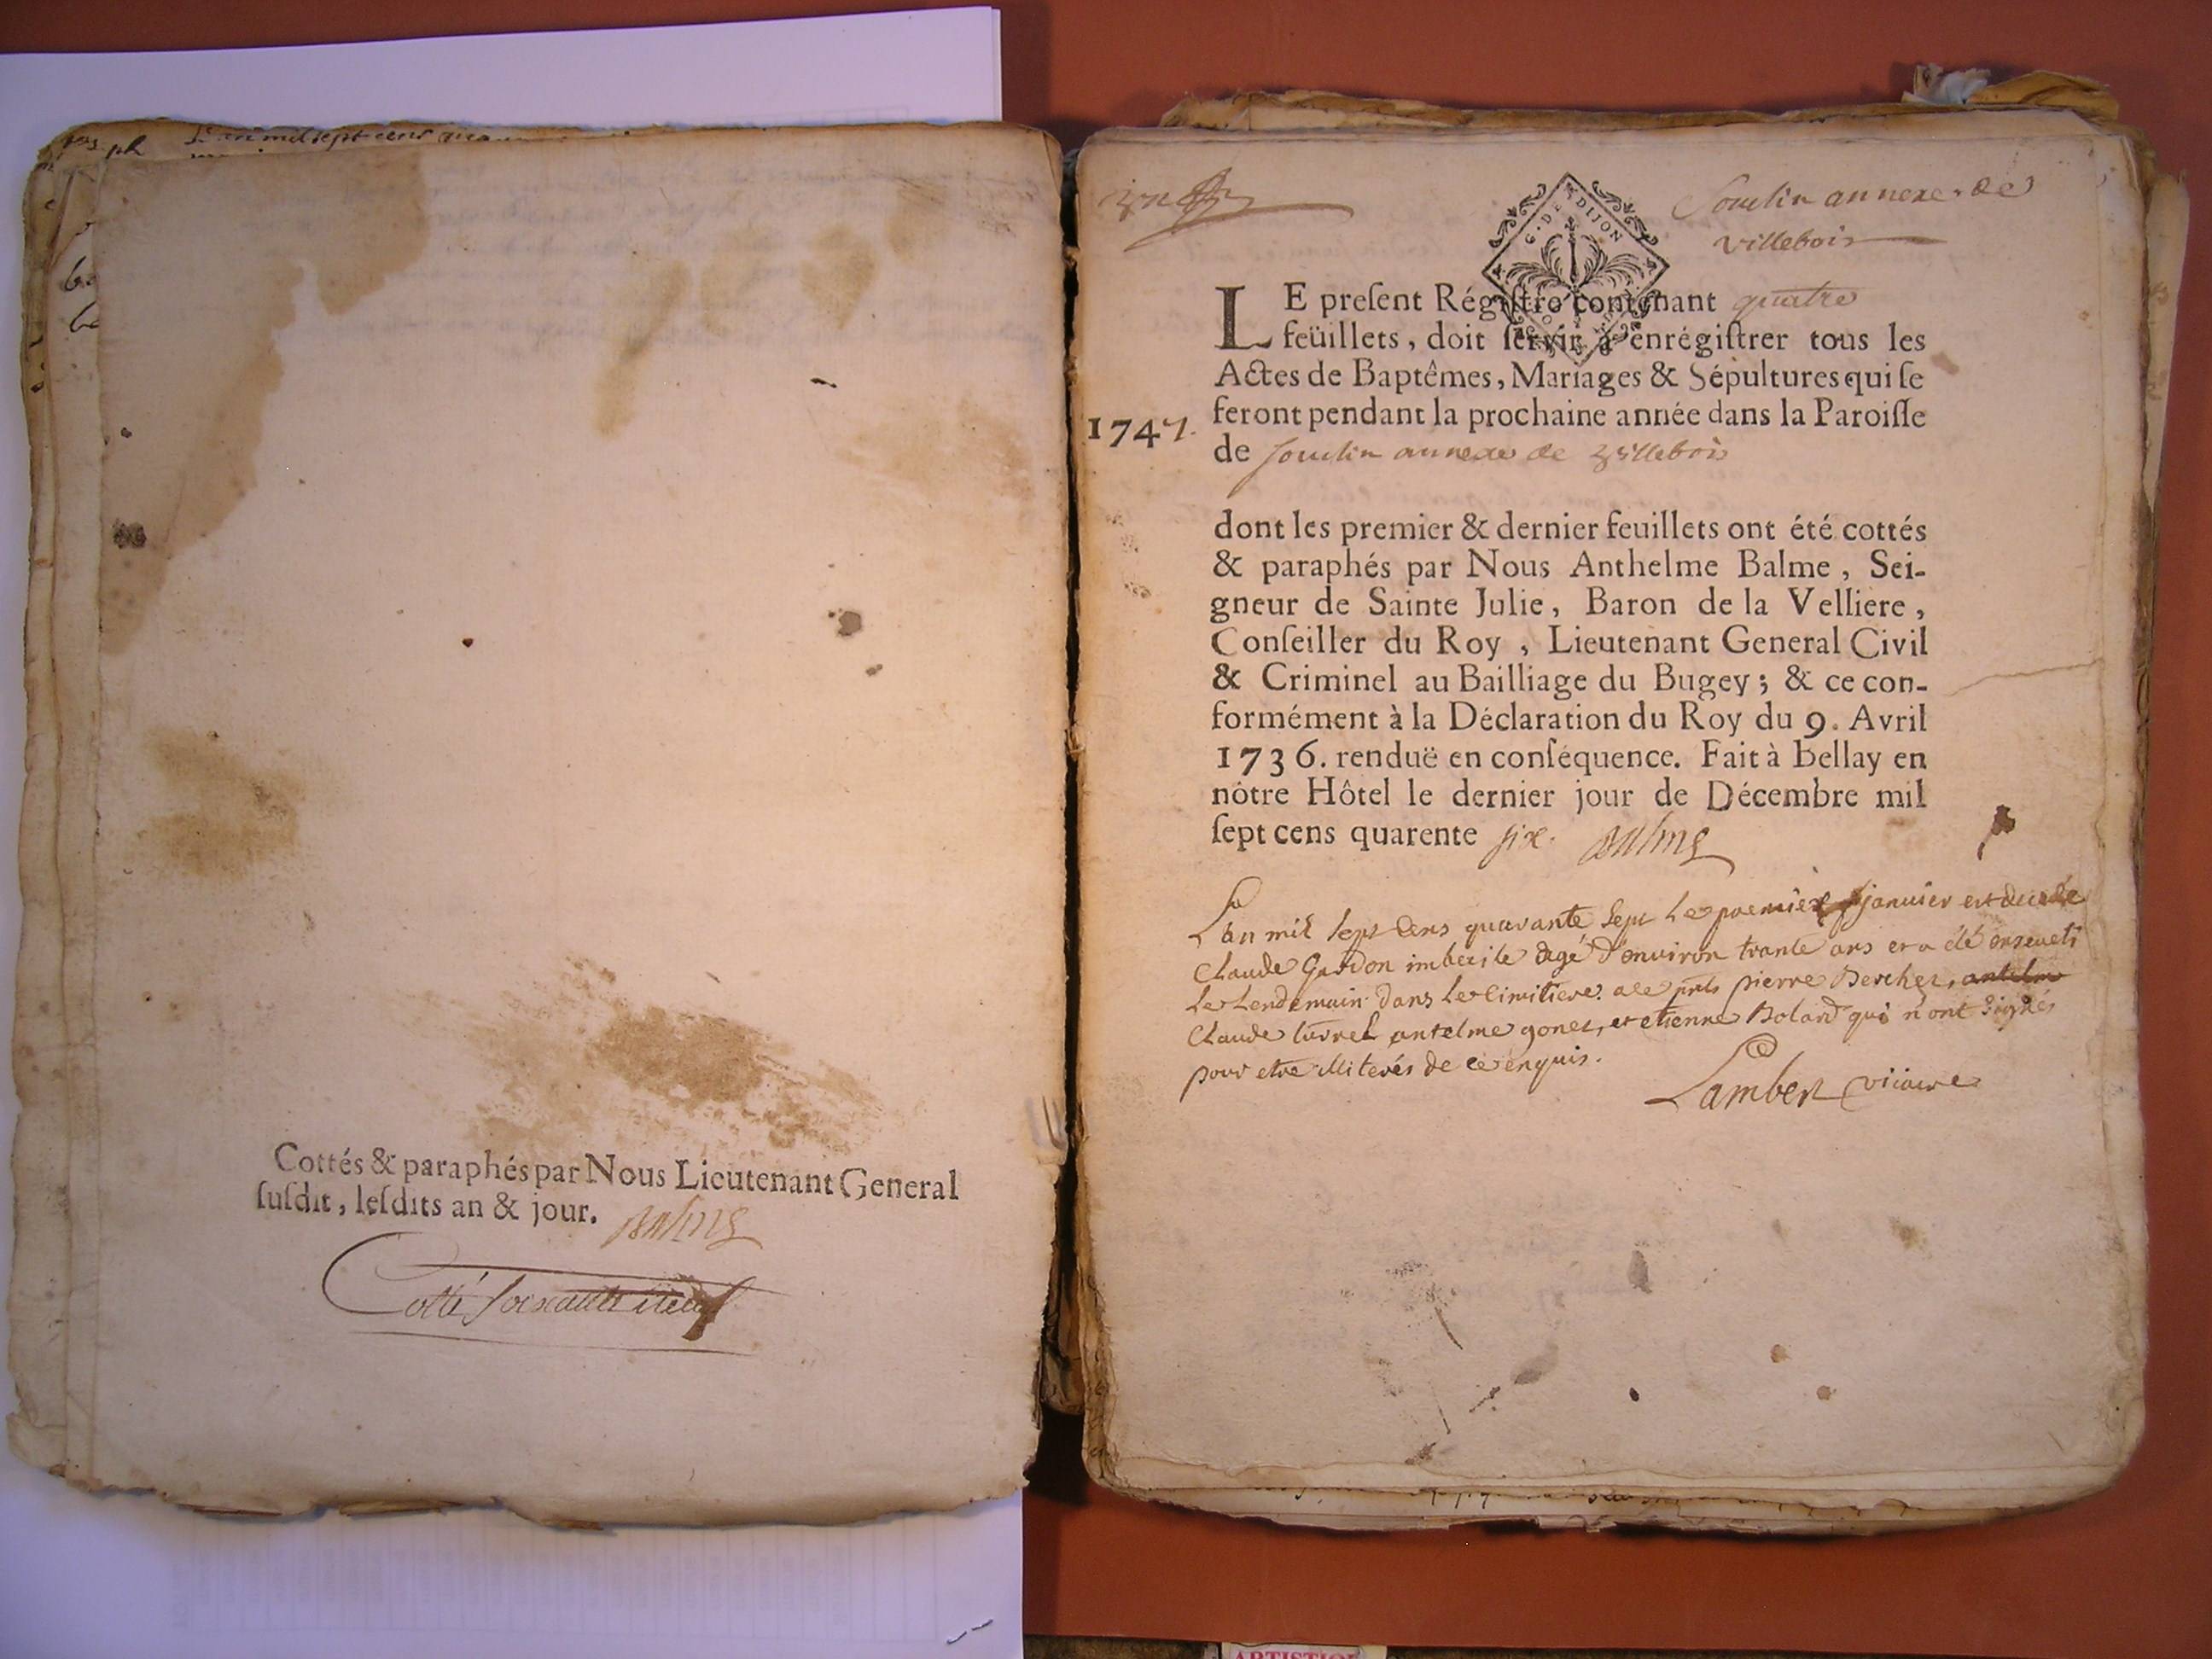 L'an mil sept cens
Cottés & paraphés par Nous Lieutenant General
ſuſdit, leſdits an & jour. Balme
Cotté soixante neuf
Soudin annexe de
villebois
G. DE DIJON
LE preſent Régiſtre contenant quatre
feüillets, doit ſervir à enrégiſtrer tous les
Actes de Baptêmes, Mariages & Sépultures qui ſe
feront pendant la prochaine année dans la Paroiſſe
1747.
de Soudin annexe de Villebois
dont les premier & dernier feuillets ont été cottés
& paraphés par Nous Anthelme Balme, Sei-
gneur de Sainte Julie, Baron de la Velliere,
Conſeiller du Roy, Lieutenant General Civil
& Criminel au Bailliage du Bugey; & ce con-
formément à la Déclaration du Roy du 9. Avril
1736. renduë en conſéquence. Fait à Bellay en
nôtre Hôtel le dernier jour de Décembre mil
ſept cens quarente six. Balme
L'an mil sept cens quarante sept le premier janvier est decede
Claude Gardon imbecile agé d'environ trante ans et a été enseveli
le lendemain dans le cimitiere pnts pierre Berchez, antelme
Claude antelme gonet, et etienne Bolard qui n'ont signés
pour etre illiterés de ce enquis.
Lambert vicaire
ARTISTIQ